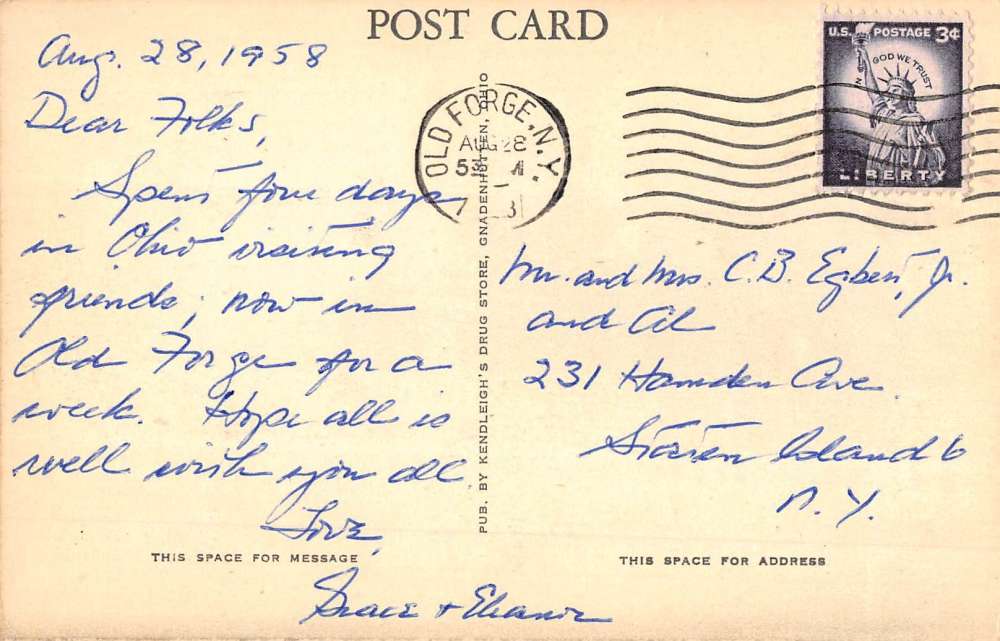 POST CARD
Aug. 28, 1958
Dear Folks,
Spent four days
in Ohio visiting
friends; now in
Old Forge for a
week. Hope all is
well with you all.
Love,
Grace + Eleanor
THIS SPACE FOR MESSAGE
PUB. BY KENDLEIGH'S DRUG STORE, GNADENHUTTEN, OHIO
OLD FORGE, N.Y.
AUG 28
U.S. POSTAGE 3¢
IN GOD WE TRUST
LIBERTY
Mr. and Mrs. C.B. Egbert, Jr.
and Al
231 Hamden Ave.
Staten Island 6
N.Y.
THIS SPACE FOR ADDRESS